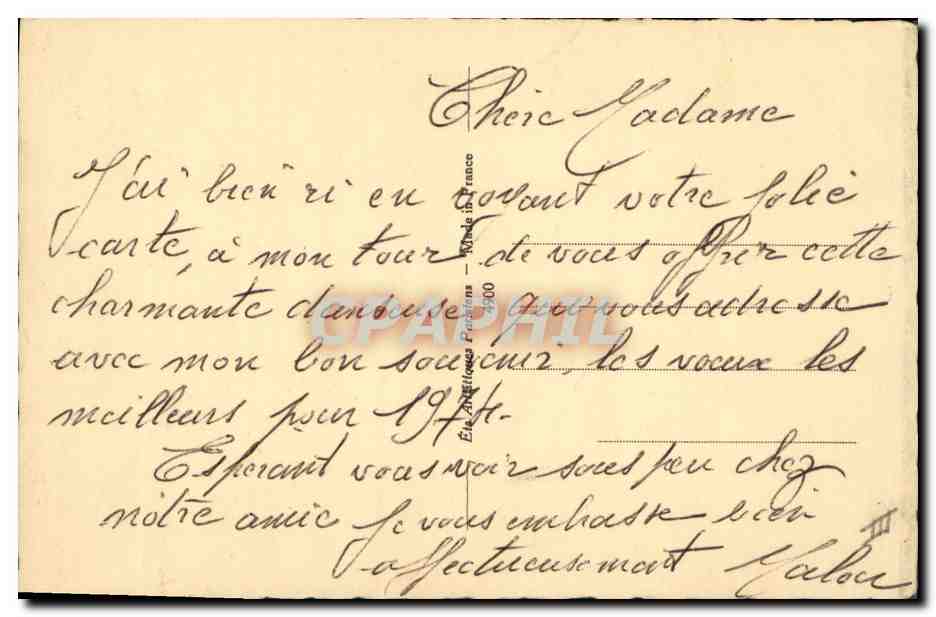 Chère Madame
J'ai bien ri en voyant votre jolie
carte, à mon tour de vous offrir cette
charmante danseuse qui vous adresse
avec mon bon souvenir, les voeux les
meilleurs pour 1974.
Espérant vous voir sous peu chez
nôtre amie je vous embrasse bien
affectueusement Malou
Éts Artistiques Parisiens — Made in France
4900
CPAPHIL